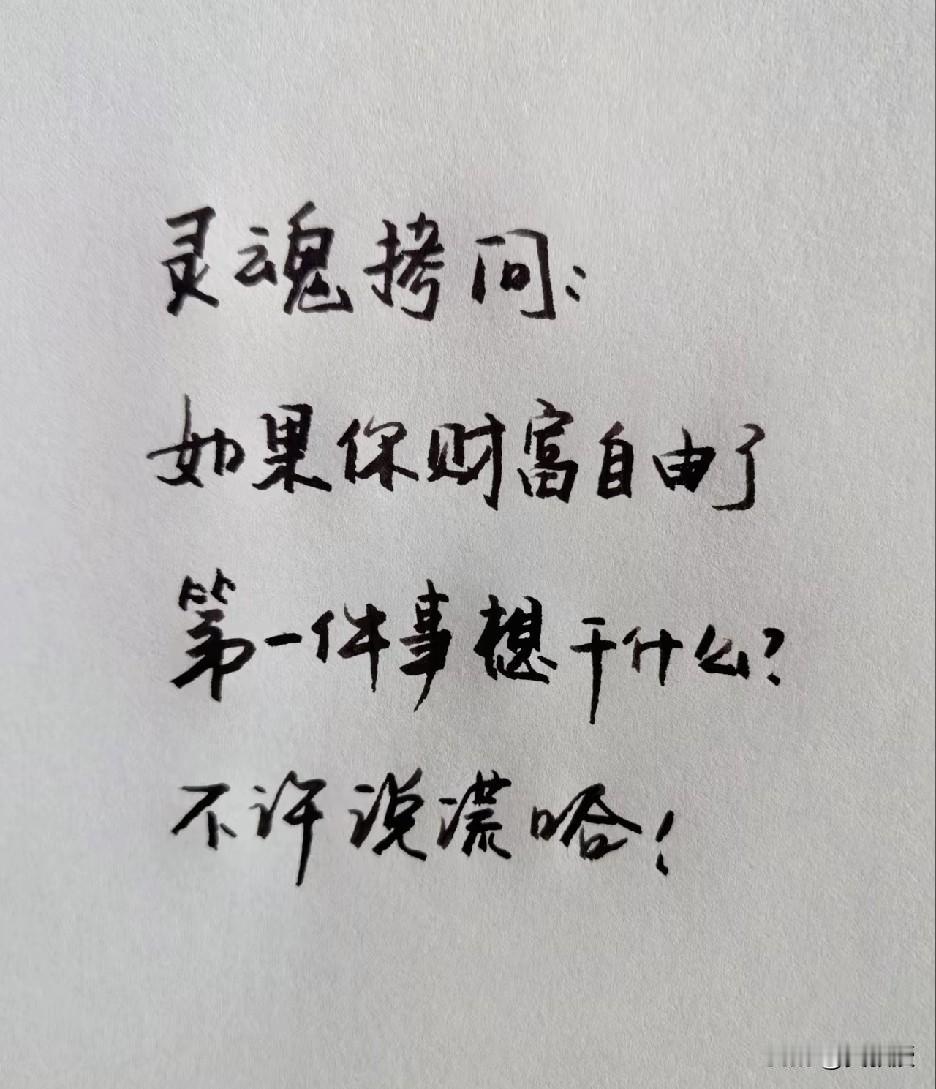 灵魂拷问：
如果你财富自由了
第一件事想干什么？
不许说谎哈！